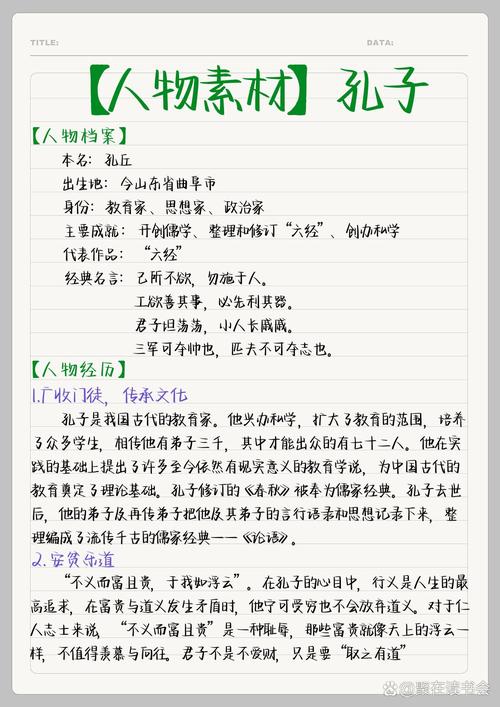 TITLE: DATA:
【人物素材】孔子
【人物档案】
本名：孔丘
出生地：今山东省曲阜市
身份：教育家、思想家、政治家
主要成就：开创儒学、整理和修订“六经”、创办私学
代表作品：“六经”
经典名言：己所不欲，勿施于人。
工欲善其事，必先利其器。
君子坦荡荡，小人长戚戚。
三军可夺帅也，匹夫不可夺志也。
【人物经历】
1.广收门徒，传承文化
孔子是我国古代的教育家。他兴办私学，扩大了教育的范围，培养
了众多学生，相传他有弟子三千，其中才能出众的有七十二人。他在实
践的基础上提出了许多至今依然有现实意义的教育学说，为中国古代的
教育奠定了理论基础。孔子修订的《春秋》被奉为儒家经典。孔子去世
后，他的弟子及再传弟子把他及其弟子的言行语录和思想记录下来，整
理编成了流传千古的儒家经典——《论语》。
2.安贫乐道
“不义而富且贵，于我如浮云”。在孔子的心目中，行义是人生的最
高追求，在富贵与道义发生矛盾时，他宁可受穷也不会放弃道义。对于仁
人志士来说，“不义而富且贵”是一种耻辱，那些富贵就像天上的浮云一
样，不值得羡慕与向往。君子不是不爱财，只是要“取之有道”
Baidu百科 @聚在读书会